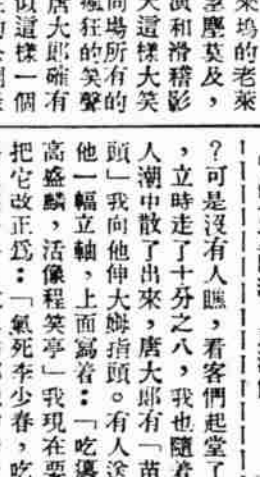 塢的老萊
塵莫及，
演和滑稽影
天這樣大笑
場所有的
瘋狂的笑聲
唐大郎確有
似這樣一個
？可是沒有人瞧，看客們起堂了
，立時走了十分之八，我也隨着
人潮中散了出來，唐大郎有「苗
頭」我向他伸大姆指頭。有人送
他一幅立軸，上面寫着：「吃癟
高盛麟，活像程笑亭」我現在要
把它改正爲：「氣死李少春，吃